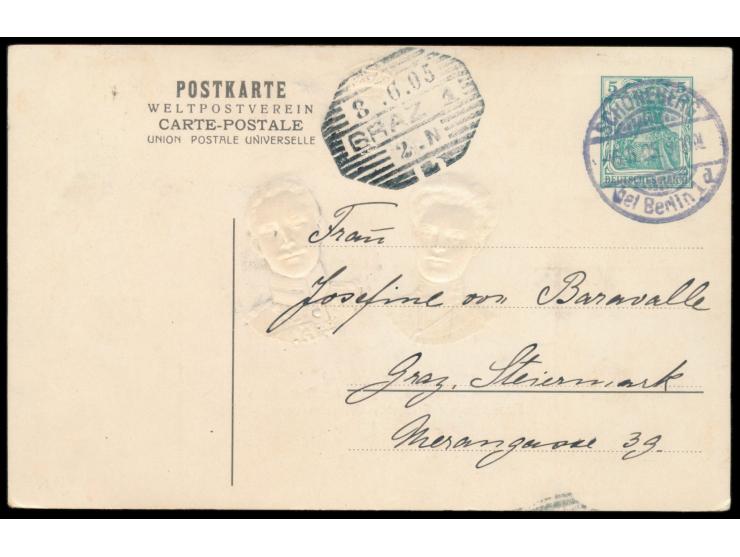 POSTKARTE
WELTPOSTVEREIN
CARTE-POSTALE
UNION POSTALE UNIVERSELLE
8.6.05
GRAZ 1
2.N.
5 5
DEUTSCHES REICH
SCHÖNEBERG
bei Berlin 1d.
Frau
Josefine von Baravalle
Graz, Steiermark
Merangasse 39.